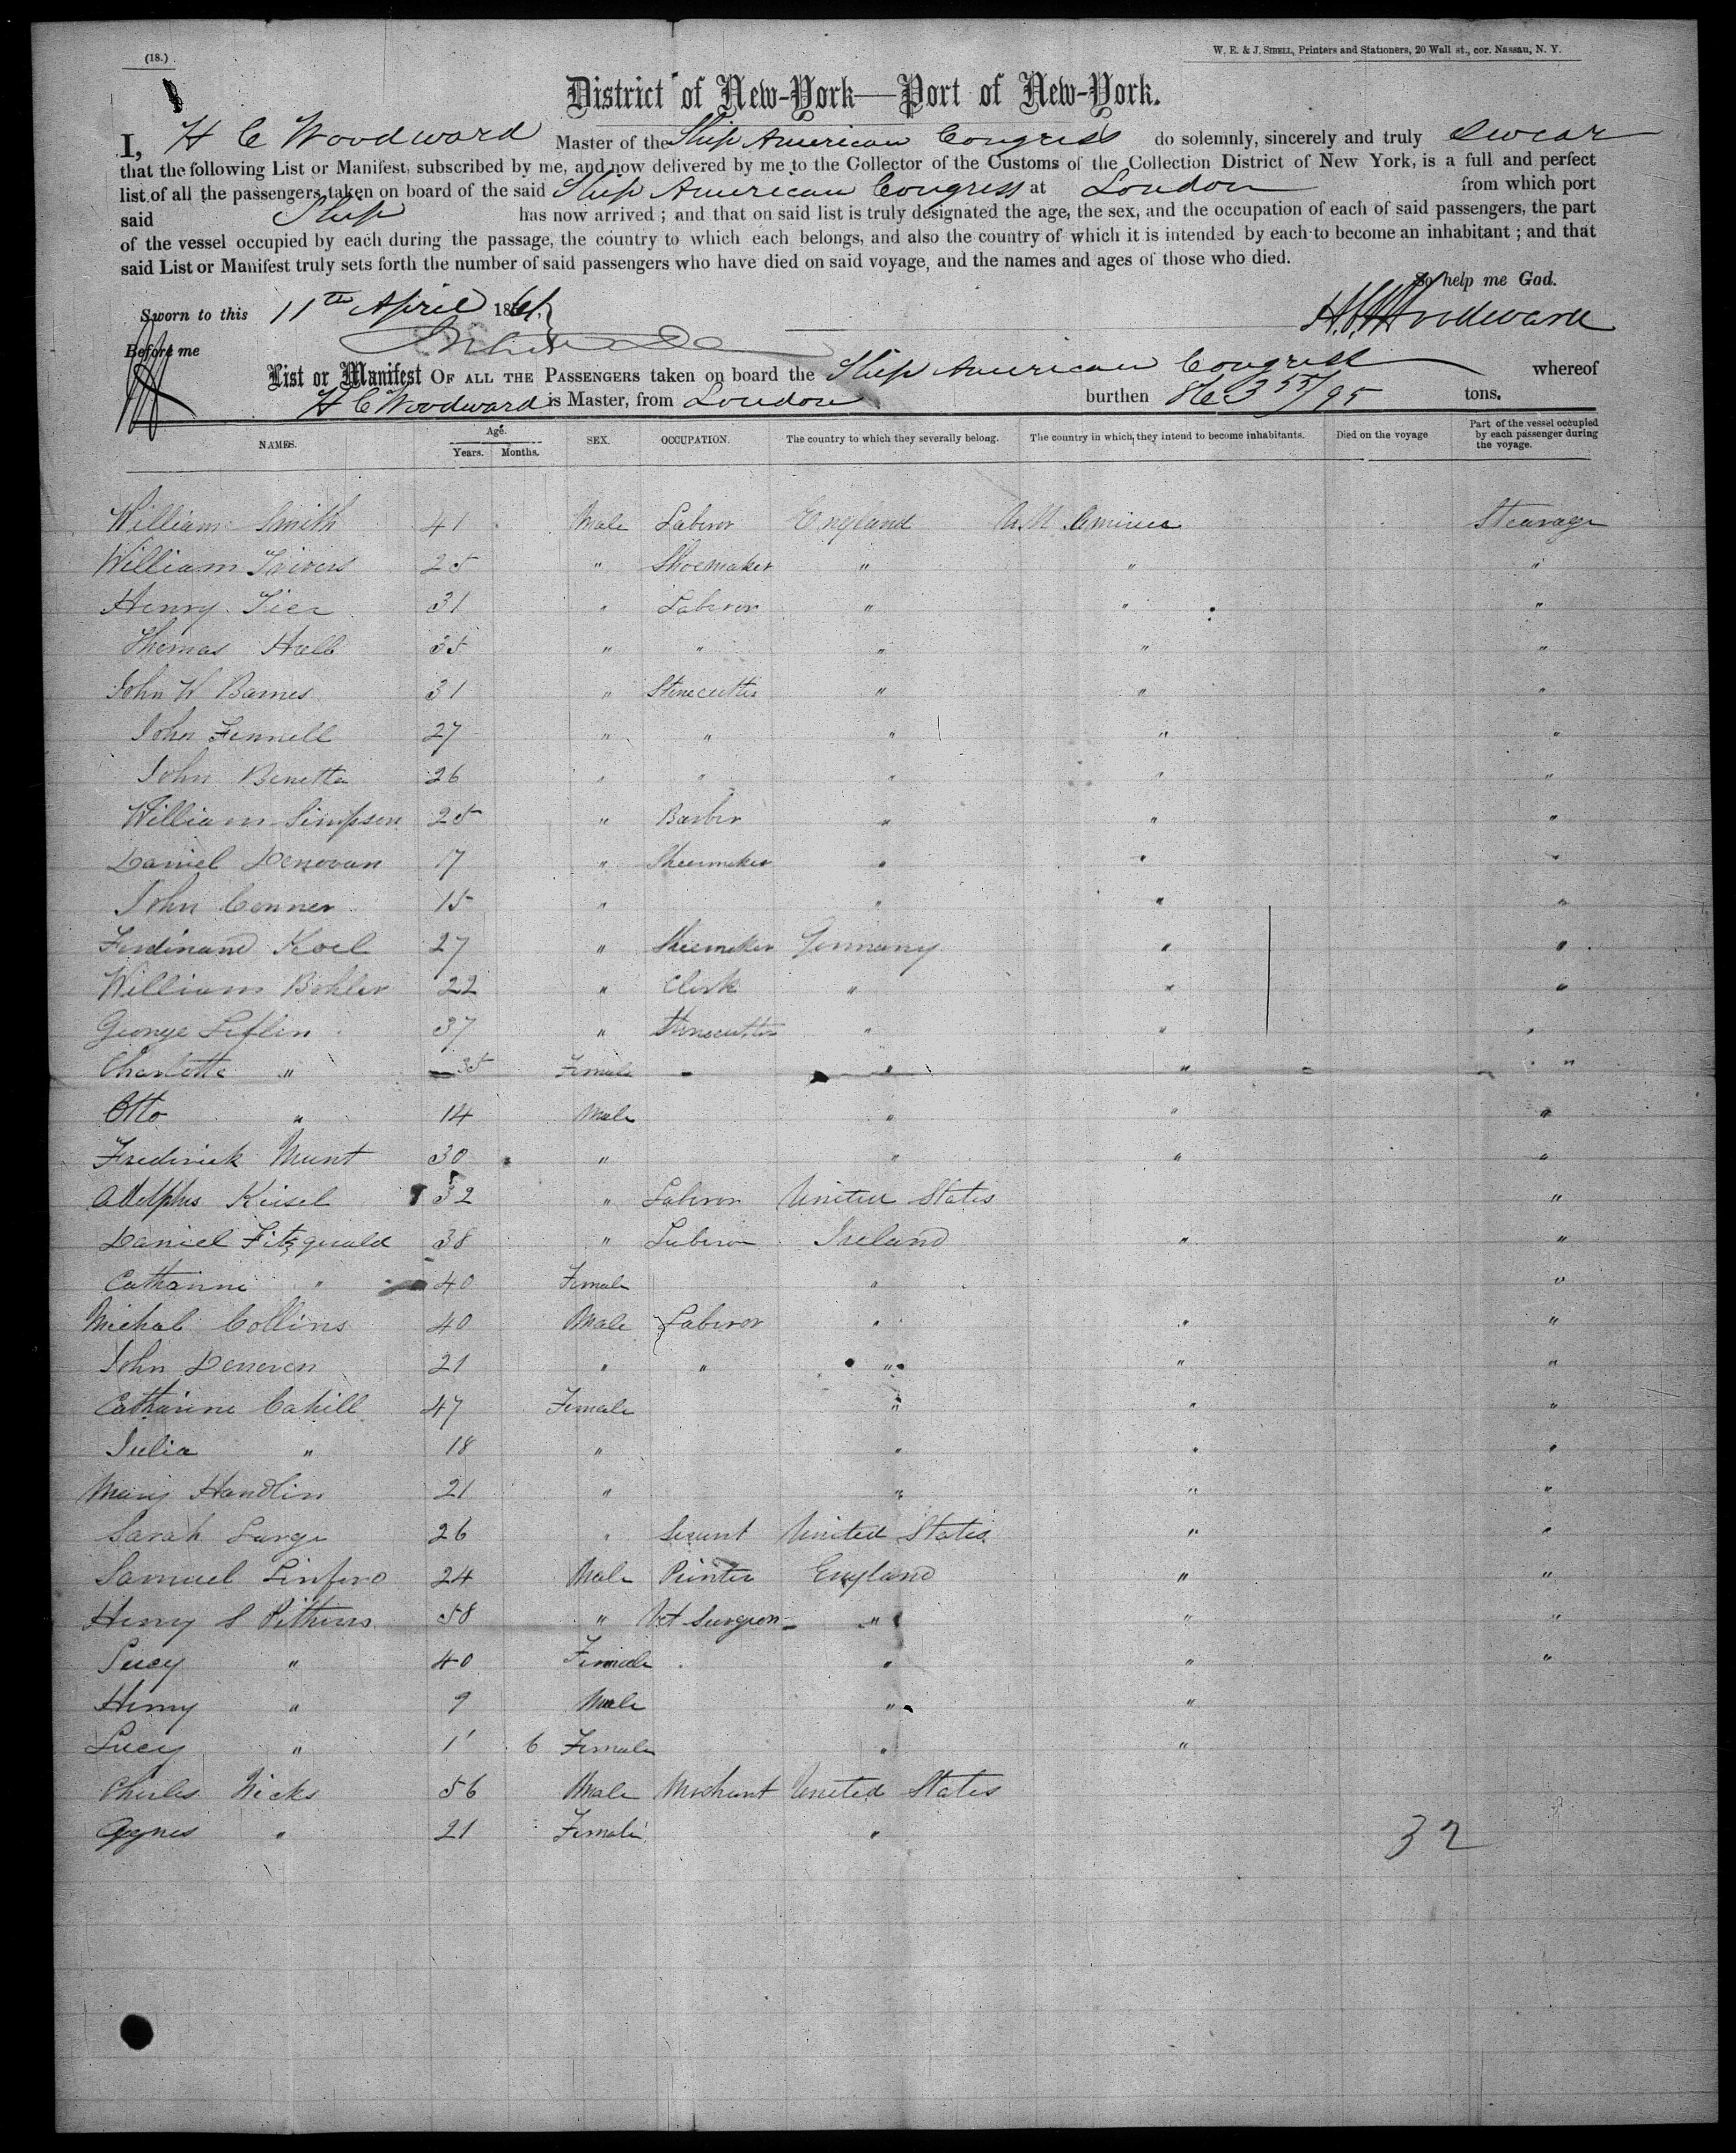 (18.)
W. E. & J. SIBELL, Printers and Stationers, 20 Wall st., cor. Nassau, N. Y.
District of New-York—Port of New-York.
I, H C Woodward Master of the Ship American Congress do solemnly, sincerely and truly Swear
that the following List or Manifest, subscribed by me, and now delivered by me to the Collector of the Customs of the Collection District of New York, is a full and perfect
list of all the passengers taken on board of the said Ship American Congress at London from which port
said Ship has now arrived ; and that on said list is truly designated the age, the sex, and the occupation of each of said passengers, the part
of the vessel occupied by each during the passage, the country to which each belongs, and also the country of which it is intended by each to become an inhabitant ; and that
said List or Manifest truly sets forth the number of said passengers who have died on said voyage, and the names and ages of those who died.
So help me God.
Sworn to this 11th April 186
H C Woodward
Before me
List or Manifest OF ALL THE PASSENGERS taken on board the Ship American Congress whereof
H C Woodward is Master, from London burthen tons.
NAMES. Age. Years. Months. SEX. OCCUPATION. The country to which they severally belong. The country in which they intend to become inhabitants. Died on the voyage Part of the vessel occupied by each passenger during the voyage.
William Smith 41 Male Labror England America Stearage
William 25 " Shoemaker " " "
Henry Tier 31 " Labror " " "
Thomas Hall 35 " " " " "
John W Barnes 31 " Stonecutter " " "
John Fennell 27 " " " " "
John Benetta 26 " " " " "
William Simpson 25 " Barber " " "
Daniel Donovan 17 " Shoemaker " " "
John Conner 15 " " " "
Ferdinand Koel 27 " Shoemaker Germany " "
William Bohler 22 " Clerk " " "
George Leflin 37 " Stonecutter " " "
Charlotte " 35 Female " " "
Otto " 14 Male " " "
Frederick Munt 30 " " " "
Adolphus Keisel 32 " Labror United States "
Daniel Fitzgerald 38 " Labror Ireland " "
Catharine " 40 Female " "
Michal Collins 40 Male Labror " " "
John Donoven 21 " " " " "
Catharine Cahill 47 Female " " "
Julia " 18 " " " "
Mary Handlin 21 " " " "
Sarah Large 26 " Servnt United States " "
Samuel Linford 24 Male Printer England " "
Henry S Pithers 58 " Vet Surgeon " " "
Lucy " 40 Female " " "
Henry " 9 Male " "
Lucy " 1 6 Female " "
Charles Nicks 56 Male Merchant United States
Agnes " 21 Female "
32